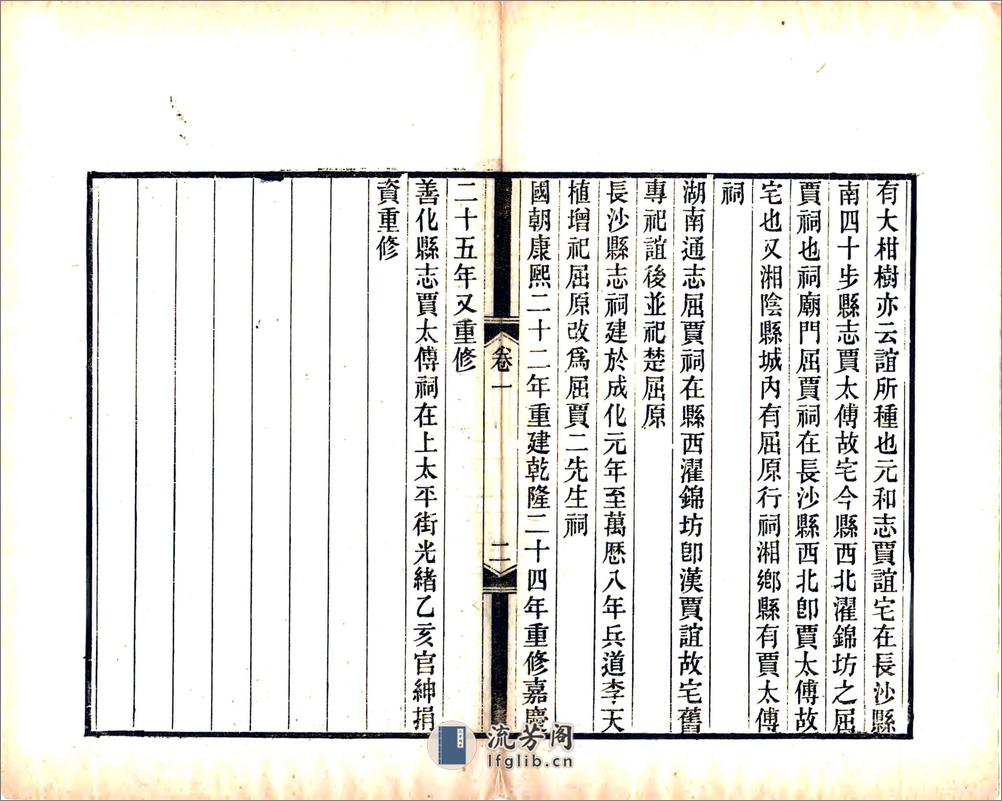 有大柑樹亦云誼所種也元和志賈誼宅在長沙縣
南四十步縣志賈太傅故宅今縣西北濯錦坊之屈
賈祠也祠廟門屈賈祠在長沙縣西北卽賈太傅故
宅也又湘陰縣城內有屈原行祠湘鄉縣有賈太傅
祠
湖南通志屈賈祠在縣西濯錦坊卽漢賈誼故宅舊
專祀誼後並祀楚屈原
長沙縣志祠建於成化元年至萬歷八年兵道李天
植增祀屈原改爲屈賈二先生祠
國朝康熙二十二年重建乾隆二十四年重修嘉慶
卷一
二
二十五年又重修
善化縣志賈太傅祠在上太平街光緒乙亥官紳捐
資重修
流芳阁
lfglib.cn